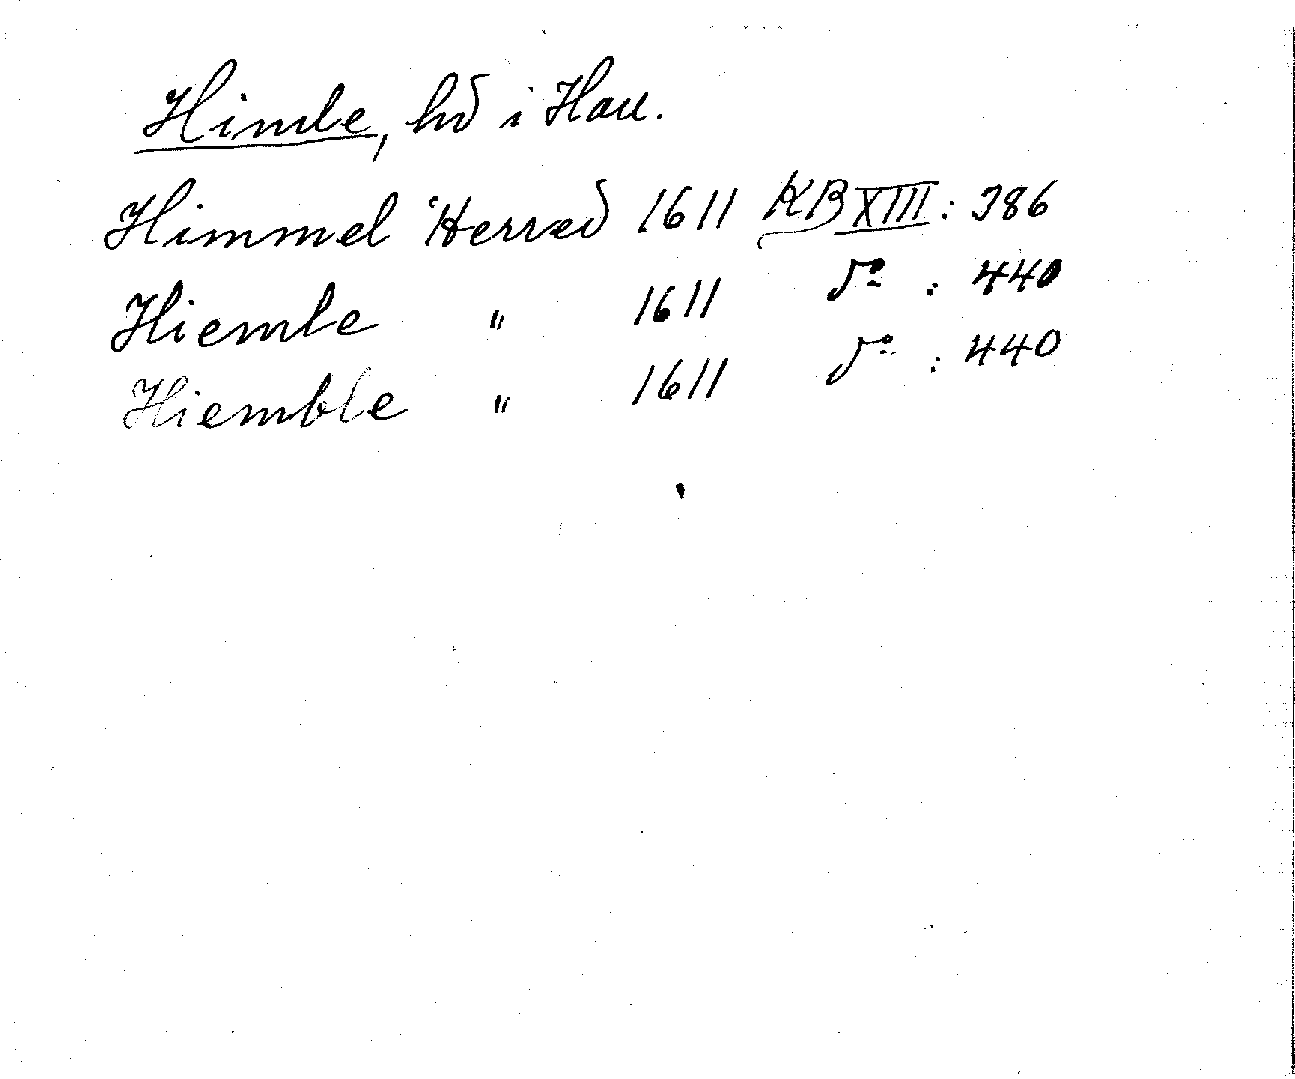 Himle, hd i Hall.
Himmel Herred 1611 KB XIII: 386
Hiemle " 1611 do : 440
Hiemble " 1611 do : 440